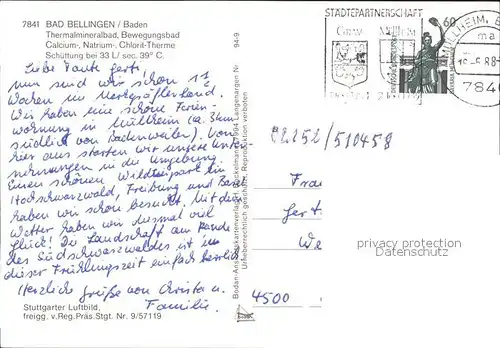 7841 BAD BELLINGEN / Baden
Thermalmineralbad, Bewegungsbad
Calcium-, Natrium-, Chlorit-Therme
Schüttung bei 33 L/sec. 39° C.
Liebe Tante Gerti.
nun sind wir schon 1½
Wochen im Markgräflerland.
Wir haben eine schöne Ferien-
wohnung in Müllheim (ca. 3km
südlich von Badenweiler). Von
hier aus starten wir unsere Unter-
nehmungen in die Umgebung.
Einen schönen Wildtierpark im
Hochschwarzwald, Freiburg und Basel
haben wir schon besucht. Mit dem
Wetter haben wir diesmal viel
Glück! Die Landschaft am Rande
des Südschwarzwaldes ist in
dieser Frühlingszeit einfach herrlich
Herzliche Grüße von Christa u.
Familie.
Stuttgarter Luftbild,
freigg. v. Reg. Präs. Stgt. Nr. 9/57119
94-9
Urheberrechtlich geschützt. Reproduktion verboten
STÄDTEPARTNERSCHAFT
Gray Müllheim
60
MÜLLHEIM,
ma
88
7840
02252/510458
Frau
Gert
We
4500
privacy protection
Datenschutz